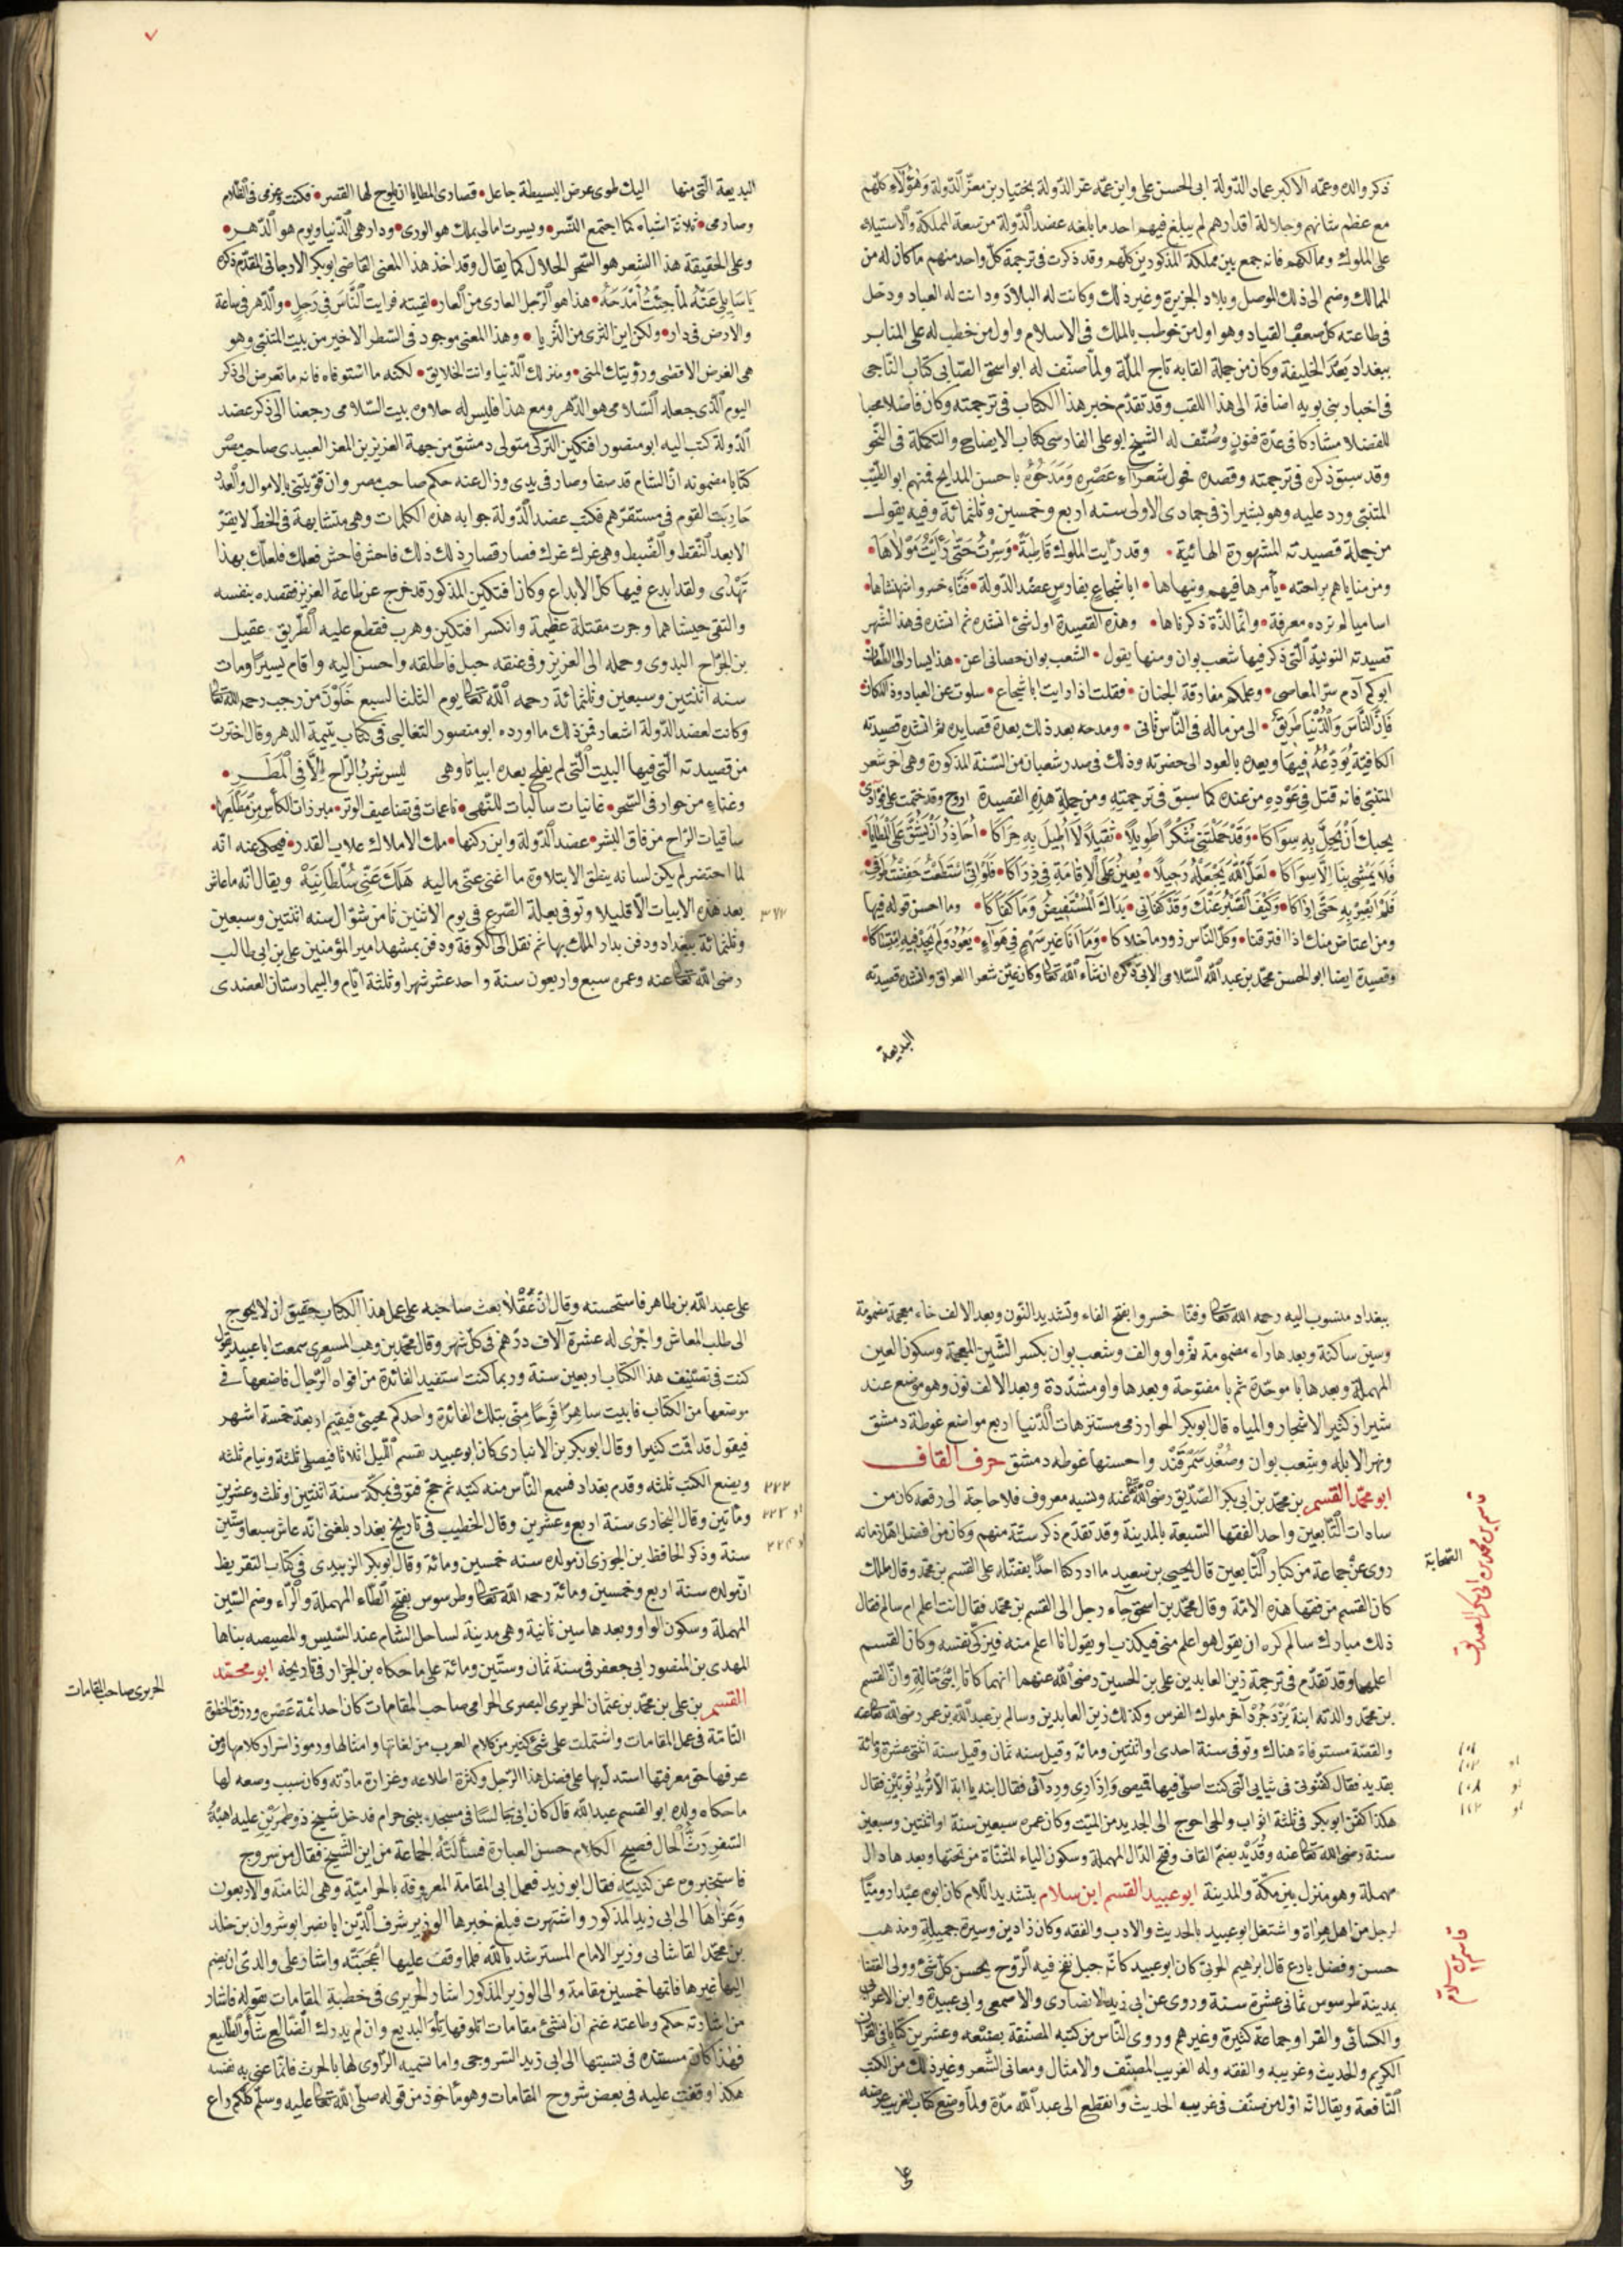 ذكر والده وعمه الاكبر عماد الدولة ابى الحسن على وابن عمه عز الدولة بختيار بن معز الدولة وهؤلاء كلهم
مع عظم شانهم وجلالة اقدارهم لم يبلغ فيهم احد ما بلغه عضد الدولة من سعة المملكة والاستيلاء
على الملوك وممالكهم فانه جمع بين مملكة المذكورين كلهم وقد ذكرت فى ترجمة كل واحد منهم ما كان له من
الممالك وضم الى ذلك الموصل وبلاد الجزيرة وغير ذلك وكانت له البلاد ودانت له العباد ودخل
فى طاعته كل صعب القياد وهو اول من خوطب بالملك فى الاسلام واول من خطب له على المنابر
ببغداد بعد الخليفة وكان من جملة القابه تاج الملة ولما صنف له ابو اسحق الصابى كتاب التاجى
فى اخبار بنى بويه اضافة الى هذا اللقب وقد تقدم خبر هذا الكتاب فى ترجمته وكان فاضلا محبا
للفضلا مشاركا فى عدة فنون وصنف له الشيخ ابو على الفارسى كتاب الايضاح والتكملة فى النحو
وقد سبق ذكره فى ترجمته وقصده فحول شعراء عصره ومدحوه باحسن المدايح فمنهم ابو الطيب
المتنبى ورد عليه وهو بشيراز فى جمادى الاولى سنه اربع وخمسين وثلثمائة وفيه يقول
من جملة قصيدته المشهورة الهائية • وقد رايت الملوك قاطبة • وسرت حتى رايت مولاها •
ومن مناياهم براحته • يأمرها فيهم وينهاها • ابا شجاع بفارس عضد الدولة • فناء خسرو شهنشاها •
اساميا لم تزده معرفة • وانما لذة ذكرناها • وهذه القصيدة اول شئ انشده ثم انشده فى هذا الشهر
قصيدته النونية التى ذكر فيها شعب بوان ومنها يقول • الشعب بوان حصانى اعن • هذا يسار الى الطعان
ابوكم آدم سن المعاصى • وعلمكم مفارقة الجنان • فقلت اذا رايت ابا شجاع • سلوت عن العباد وذا المكان
فان الناس والدنيا طريق • الى من ماله فى الناس ثانى • ومدحه بعد ذلك بعدة قصايد ثم انشده قصيدته
الكافية يودعه فيها ويعده بالعود الى حضرته وذلك فى صدر شعبان من السنة المذكورة وهى اخر شعر
المتنبى فانه قتل فى عوده من عنده كما سبق فى ترجمته ومن جملة هذه القصيدة اروح وقد ختمت على فؤادى
بحبك ان يحل به سواكا • وقد حملتنى شكرا طويلا • ثقيلا لا اطيق به حراكا • احاذر ان يشق على المطايا •
فلا يمشى بنا الا سواكا • لعل الله يجعله رحيلا • يعين على الاقامة فى ذراكا • فلو انى استطعت خفضت طرفى •
فلم ابصر به حتى اراكا • وكيف الصبر عنك وقد كفانى • نداك المستفيض وما كفاكا • وما احسن قوله فيها
ومن اعتاض منك اذا افترقنا • وكل الناس زور ما خلاكا • وما انا غير سهم فى هواء • يعود ولم يجد فيه امتساكا •
وقصيدة ايضا ابو الحسن محمد بن عبد الله السلامى الاتى ذكره ان شاء الله تعالى وكان عين شعرا العراق وانشده قصيدته
البديعة
٧
البديعة التى منها اليك طوى عرض البسيطة جاعل • قصارى المطايا ان يلوح لها القصر • فكنت وعزمى فى الظلام
وصارمى • ثلاثة اشباه كما اجتمع النسر • ويسرت امالى بملك هو الورى • ودار هى الدنيا ويوم هو الدهر •
وعلى الحقيقة هذا الشعر هو السحر الحلال كما يقال وقد اخذ هذا المعنى القاضى ابو بكر الارجانى المقدم ذكره
يا سايلى عنه لما جئت امدحه • هذا هو الرجل العارى من العار • لقيته فرايت الناس فى رجل • والدهر فى ساعة
والارض فى دار • ولكن اين الثرى من الثريا • وهذا المعنى موجود فى الشطر الاخير من بيت المتنبى وهو
هى الغرض الاقصى ورؤيتك المنى • ومنزلك الدنيا وانت الخلايق • لكنه ما استوفاه فانه ما تعرض الى ذكر
اليوم الذى جعله السلامى هو الدهر ومع هذا فليس له حلاوه بيت السلامى رجعنا الى ذكر عضد
الدولة كتب اليه ابو منصور افتكين التركى متولى دمشق من جهة العزيز بن المعز العبيدى صاحب مصر
كتابا مضمونه ان الشام قد صفا وصار فى يدى وزال عنه حكم صاحب مصر وان قويتنى بالاموال والعدد
حاربت القوم فى مستقرهم فكتب عضد الدولة جوابه هذه الكلمات وهى متشابهة فى الخط لا يقر
الا بعد النقط والضبط وهى غرك عزك فصار قصار ذلك ذلك فاخش فاحش فعلك فعلك بهذا
تهدى ولقد ابدع فيها كل الابداع وكان افتكين المذكور قد خرج عن طاعة العزيز فقصده بنفسه
والتقى جيشاهما وجرت مقتلة عظيمة وانكسر افتكين وهرب فقطع عليه الطريق دغفل
بن الجراح البدوى وحمله الى العزيز وفى عنقه حبل فاطلقه واحسن اليه واقام يسيرا ومات
سنه اثنتين وسبعين وثلثمائة رحمه الله تعالى يوم الثلثا لسبع خلون من رجب رحمه الله تعالى
وكانت لعضد الدولة اشعار فمن ذلك ما اورده ابو منصور الثعالبى فى كتاب يتيمة الدهر وقال اخترت
من قصيدته التى فيها البيت التى لم يفلح بعده ابياتا وهى ليس شرب الراح الا فى المطر •
وغناء من جوار فى السحر • غانيات سالبات للنهى • ناعمات فى تضاعيف الوتر • مبرزات الكأس من مطلعها •
ساقيات الراح من فاق البشر • عضد الدولة وابن ركنها • ملك الاملاك غلاب القدر • فيحكى عنه انه
لما احتضر لم يكن لسانه ينطق الا بتلاوة ما اغنى عنى ماليه هلك عنى سلطانيه ويقال انه ما عاش
بعد هذه الابيات الا قليلا وتوفى بعلة الصرع فى يوم الاثنين ثامن شوال سنه اثنتين وسبعين
٣٧٢
وثلثمائة ببغداد ودفن بدار الملك بها ثم نقل الى الكوفة ودفن بمشهد امير المؤمنين على بن ابى طالب
رضى الله تعالى عنه وعمره سبع واربعون سنة واحد عشر شهرا وثلثة ايام والبيمارستان العضدى
ببغداد منسوب اليه رحمه الله تعالى وفنا خسرو بفتح الفاء وتشديد النون وبعد الالف خاء معجمة مضمومة
وسين ساكنة وبعدها راء مضمومة ثم واو والف وشعب بوان بكسر الشين المعجمة وسكون العين
المهملة وبعدها با موحدة ثم با مفتوحة وبعدها واو مشددة وبعد الالف نون وهو موضع عند
شيراز كثير الاشجار والمياه قال ابو بكر الخوارزمى مستنزهات الدنيا اربع مواضع غوطة دمشق
ونهر الابله وشعب بوان وصغد سمرقند واحسنها غوطه دمشق حرف القاف
ابو محمد القسم بن محمد بن ابى بكر الصديق رضى الله تعالى عنه ونسبه معروف فلا حاجة الى رفعه كان من
سادات التابعين واحد الفقها السبعة بالمدينة وقد تقدم ذكر ستة منهم وكان من افضل اهل زمانه
روى عن جماعة من كبار التابعين قال يحيى بن سعيد ما ادركنا احدا نفضله على القسم بن محمد وقال ملك
كان القسم من فقها هذه الامة وقال محمد بن اسحق جاء رجل الى القسم بن محمد فقال انت اعلم ام سالم فقال
ذلك مبارك سالم كره ان يقول هو اعلم منى فيكذب او يقول انا اعلم منه فيزكى نفسه وكان القسم
اعلمهما وقد تقدم فى ترجمة زين العابدين على بن الحسين رضى الله عنهما انهما كانا ابنى خالة وان القسم
بن محمد والدته ابنة يزدجرد آخر ملوك الفرس وكذلك زين العابدين وسالم بن عبد الله بن عمر رضى الله تعالى عنه
والقصة مستوفاة هناك وتوفى سنة احدى او اثنتين ومائه وقيل سنه ثمان وقيل سنة اثنتى عشرة ومائة
بقديد فقال كفنونى فى ثيابى التى كنت اصلى فيها قميصى وازارى وردائى فقال ابنه يا ابة الا تزيد ثوبين فقال
هكذا كفن ابو بكر فى ثلثة اثواب والحى احوج الى الجديد من الميت وكان عمره سبعين سنة او اثنتين وسبعين
سنة رضى الله تعالى عنه وقديد بضم القاف وفتح الدال المهملة وسكون الياء المثناة من تحتها وبعدها دال
مهملة وهو منزل بين مكة والمدينة ابو عبيد القسم ابن سلام بتشديد اللام كان ابوه عبدا روميا
لرجل من اهل هراة واشتغل ابو عبيد بالحديث والادب والفقه وكان ذا دين وسيرة جميلة ومذهب
حسن وفضل بارع قال ابرهيم الحربى كان ابو عبيد كانه جبل نفخ فيه الروح يحسن كل شئ وولى القضا
بمدينة طرسوس ثمانى عشرة سنة وروى عن ابى زيد الانصارى والاصمعى وابى عبيدة وابن الاعرابى
والكسائى والفرا وجماعة كثيرة وغيرهم وروى الناس من كتبه المصنفة بضعه وعشرين كتابا فى القران
الكريم والحديث وغريبه والفقه وله الغريب المصنف والامثال ومعانى الشعر وغير ذلك من الكتب
النافعة ويقال انه اول من صنف فى غريب الحديث وانقطع الى عبد الله مدة ولما وضع كتاب الغريب عرضه
على
قاسم بن محمد بن ابى بكر الصديق
١٠١
او ١٠٢
او ١٠٨
او ١١٢
قاسم بن سلام
٨
على عبد الله بن طاهر فاستحسنه وقال ان عقلا بعث صاحبه على عمل هذا الكتاب حقيق ان لا يحوج
الى طلب المعاش واجرى له عشرة آلاف درهم فى كل شهر وقال محمد بن وهب المسعرى سمعت ابا عبيد يقول
كنت فى تصنيف هذا الكتاب اربعين سنة وربما كنت استفيد الفائدة من افواه الرجال فاضعها فى
موضعها من الكتاب فابيت ساهرا فرحا منى بتلك الفائدة واحدكم يجيئنى فيقيم اربعة خمسة اشهر
فيقول قد اقمت كثيرا وقال ابو بكر بن الانبارى كان ابو عبيد يقسم الليل اثلاثا فيصلى ثلثه وينام ثلثه
ويضع الكتب ثلثه وقدم بغداد فسمع الناس منه كتبه ثم حج فتوفى بمكة سنة اثنتين او ثلث وعشرين
٢٢٢
ومأتين وقال البخارى سنة اربع وعشرين وقال الخطيب فى تاريخ بغداد بلغنى انه عاش سبعا وستين
او ٢٢٣
سنة وذكر الحافظ بن الجوزى ان مولده سنه خمسين ومائه وقال ابو بكر الزبيدى فى كتاب التقريظ
او ٢٢٤
ان مولده سنة اربع وخمسين ومائة رحمه الله تعالى وطرسوس بفتح الطاء المهملة والراء وضم السين
المهملة وسكون الواو وبعدها سين ثانية وهى مدينة لساحل الشام عند السيس والمصيصه بناها
المهدى بن المنصور ابى جعفر فى سنة ثمان وستين ومائة على ما حكاه بن الجزار فى تاريخه ابو محمد
القسم بن على بن محمد بن عثمان الحريرى البصرى الحرامى صاحب المقامات كان احد ائمة عصره ورزق الحظوة
الحريرى صاحب المقامات
التامة فى عمل المقامات واشتملت على شئ كثير من كلام العرب من لغاتها وامثالها ورموز اسرار كلامها ومن
عرفها حق معرفتها استدل بها على فضل هذا الرجل وكثرة اطلاعه وغزارة مادته وكان سبب وضعه لها
ما حكاه ولده ابو القسم عبد الله قال كان ابى جالسا فى مسجده ببنى حرام فدخل شيخ ذو طمرين عليه اهبة
السفر رث الحال فصيح الكلام حسن العبارة فسألته الجماعة من اين الشيخ فقال من سروج
فاستخبروه عن كنيته فقال ابو زيد فعمل ابى المقامة المعروفة بالحرامية وهى الثامنة والاربعون
وعزاها الى ابى زيد المذكور واشتهرت فبلغ خبرها الوزير شرف الدين ابا نصر انوشروان بن خالد
بن محمد القاشانى وزير الامام المسترشد بالله فلما وقف عليها اعجبته واشار على والدى ان يضم
اليها غيرها فاتمها خمسين مقامة والى الوزير المذكور اشار الحريرى فى خطبة المقامات بقوله فاشار
من اشارته حكم وطاعته غنم ان انشئ مقامات اتلو فيها تلو البديع وان لم يدرك الظالع شأو الضليع
فهذا كان مستنده فى نسبتها الى ابى زيد السروجى واما تسميه الراوى لها بالحرث فانما عنى به نفسه
هكذا وقفت عليه فى بعض شروح المقامات وهو مأخوذ من قوله صلى الله تعالى عليه وسلم كلكم راع